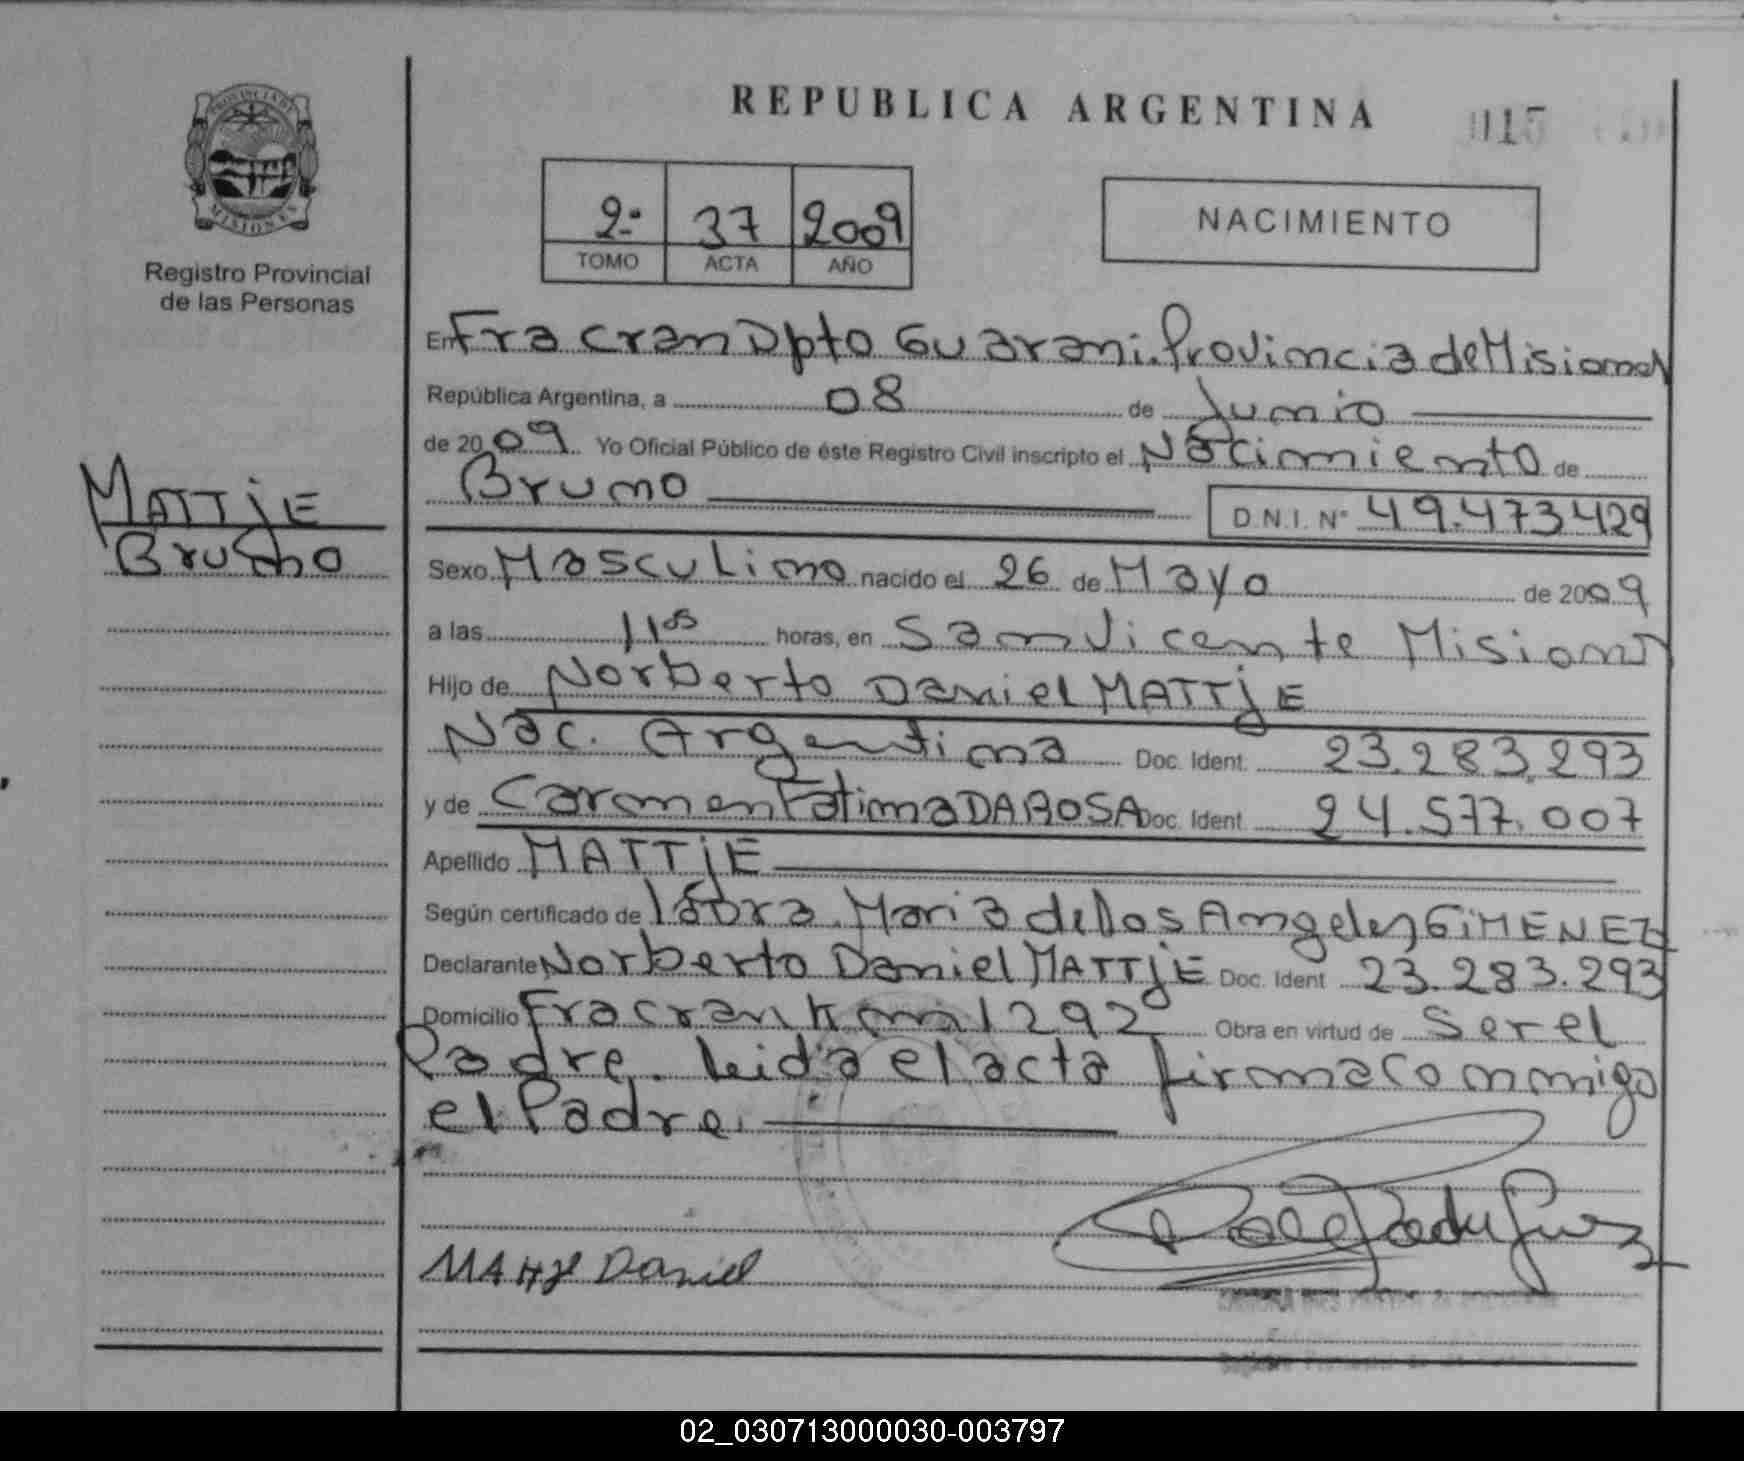 REPUBLICA ARGENTINA
015
PROVINCIA DE
MISIONES
Registro Provincial
de las Personas
2º 37 2009
TOMO ACTA AÑO
NACIMIENTO
MATTjE
Bruno
En Fracran Dpto Guarani. Provincia de Misiones
República Argentina, a 08 de Junio
de 2009. Yo Oficial Público de éste Registro Civil inscripto el Nacimiento de
Bruno D.N.I. Nº 49.473429
Sexo Masculino nacido el 26 de Mayo de 2009
a las 11 horas, en San Vicente Misiones
Hijo de Norberto Daniel MATTjE
Nac. Argentina Doc. Ident. 23.283.293
y de Carmen Fatima DA ROSA Doc. Ident. 24.577.007
Apellido MATTjE
Según certificado de la Dra. Maria de los Angeles GiMENEZ
Declarante Norberto Daniel MATTjE Doc. Ident 23.283.293
Domicilio Fracran Km 1292 Obra en virtud de Ser el
Padre. Leida el acta firma conmigo
el Padre.
Daniel
02_030713000030-003797